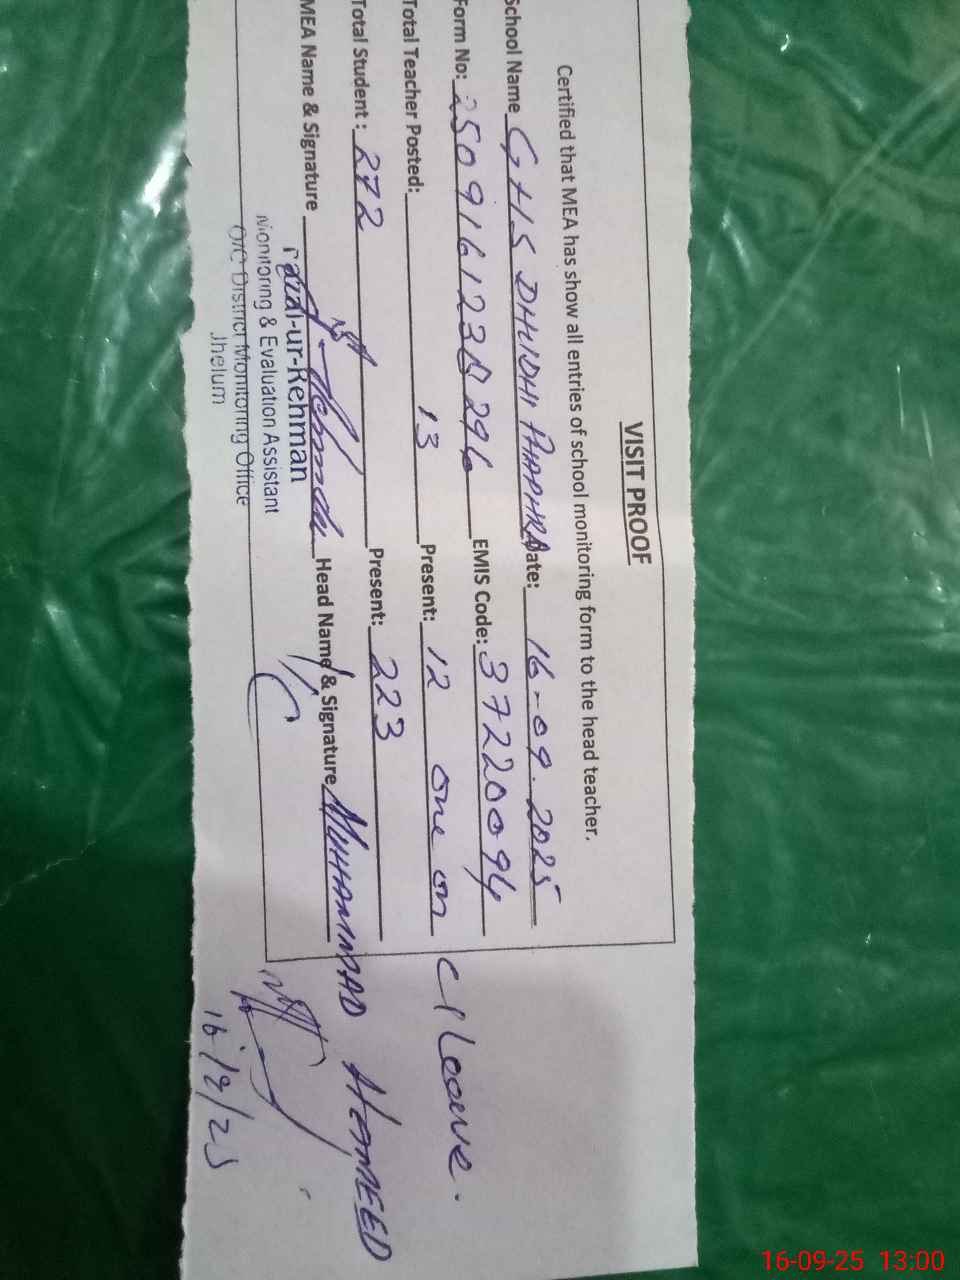 VISIT PROOF
Certified that MEA has show all entries of school monitoring form to the head teacher.
School Name GHS DHUDHI PHAPHRA Date: 16-09.2025
Form No: EMIS Code: 37220094
Total Teacher Posted: 13 Present: 12 one on C/Leave.
Total Student: 272 Present: 223
MEA Name & Signature Head Name & Signature MUHAMMAD HAMEED
-ur-Rehman
Monitoring & Evaluation Assistant
O/C District Monitoring Office
Jhelum
16/9/25
16-09-25 13:00